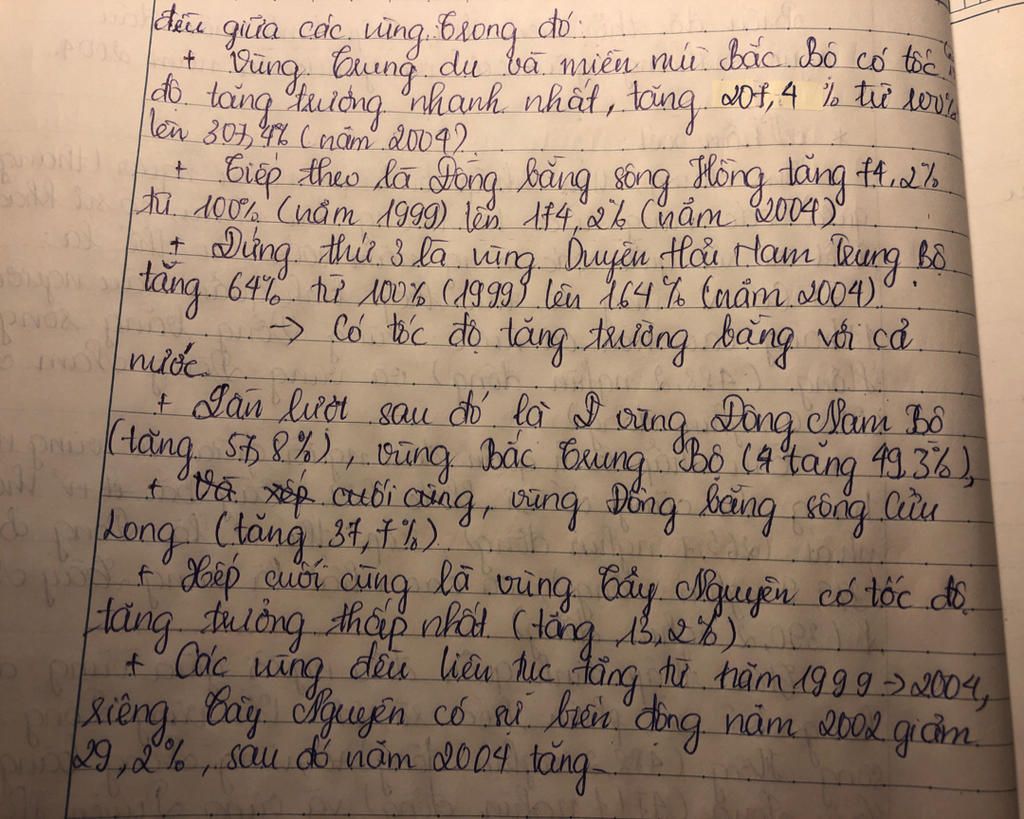 đều giữa các vùng trong đó:
+ Vùng trung du và miền núi Bắc Bộ có tốc
độ tăng trưởng nhanh nhất, tăng 207,4 % từ 100%
lên 307,4% (năm 2004)
+ Tiếp theo là Đồng bằng sông Hồng tăng 74,2%
từ 100% (năm 1999) lên 174,2% (năm 2004)
+ Đứng thứ 3 là vùng Duyên Hải Nam Trung Bộ
tăng 64% từ 100% (1999) lên 164% (năm 2004).
→ Có tốc độ tăng trưởng bằng với cả
nước.
+ Lần lượt sau đó là vùng Đông Nam Bộ
(tăng 57,8%), vùng Bắc Trung Bộ (tăng 49,3%),
+ Và xếp cuối cùng, vùng Đồng bằng sông Cửu
Long (tăng 37,7%)
+ Xếp cuối cùng là vùng Tây Nguyên có tốc độ
tăng trưởng thấp nhất (tăng 13,2%)
+ Các vùng đều liên tục tăng từ năm 1999→2004,
riêng Tây Nguyên có sự biến động năm 2002 giảm
29,2%, sau đó năm 2004 tăng